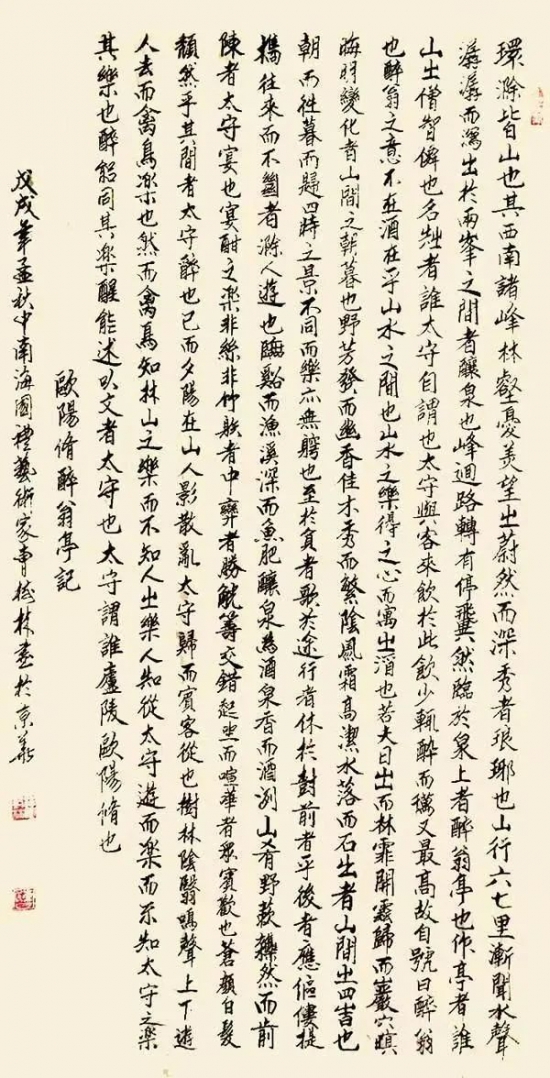 環滁皆山也其西南諸峰林壑憂美望㞢蔚然而深秀者琅琊也山行六七里漸聞水聲
潺潺而瀉出於兩峯之間者釀泉也峰迴路轉有停翼然臨於泉上者醉翁亭也作亭者誰
山㞢僧智僊也名㞢者誰太守自謂也太守與客來飲於此飲少輒醉而又最高故自號曰醉翁
也醉翁之意不在酒在乎山水之間也山水之樂得之心而寓㞢酒也若夫日出而林霏開雲歸而巖穴暝
晦明變化者山間之朝暮也野芳發而幽香佳木秀而繁陰風霜高潔水落而石出者山間㞢四時也
朝而往暮而歸四時之景不同而樂亦無窮也至於負者歌於途行者休於樹前者乎後者應傴僂提
攜往來而不絕者滁人遊也臨谿而漁溪深而魚肥釀泉為酒泉香而酒洌山肴野蔌雜然而前
陳者太守宴也宴酣之樂非絲非竹射者中弈者勝觥籌交錯起坐而喧嘩者眾賓歡也蒼顏白髮
頹然乎其間者太守醉也已而夕陽在山人影散亂太守歸而賓客從也樹林陰翳鳴聲上下遊
人去而禽鳥樂也然而禽鳥知林山之樂而不知人㞢樂人知從太守遊而樂而不知太守之樂
其樂也醉能同其樂醒能述以文者太守也太守謂誰廬陵歐陽脩也
歐陽脩醉翁亭記
戊戌年孟秋中南海國禮藝術家曹林書於京華